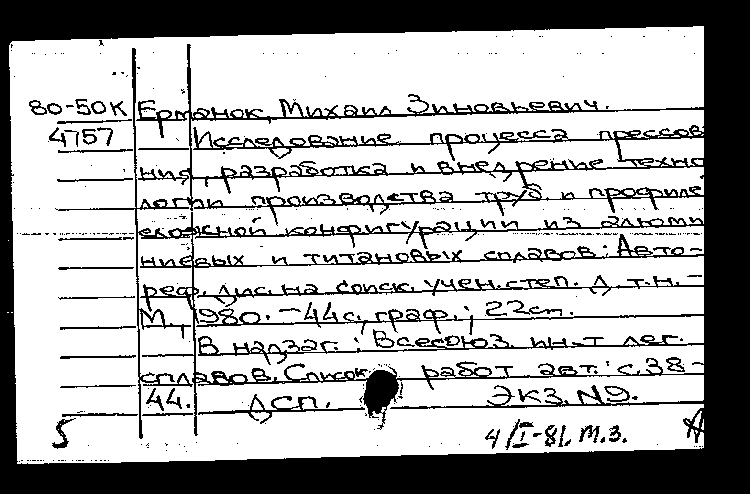 80-50К Ерманок, Михаил Зиновьевич.
4757 Исследование процесса прессов
ния, разработка и внедрение техно
логии производства труб и профиле
сложной конфигурации из алюми
ниевых и титановых сплавов: Авто-
реф. дис. на соиск. учен. степ. д.т.н. -
М., 1980. - 44 с, граф.; 22 см.
В надзаг.: Всесоюз. ин-т лег.
сплавов. Список работ авт.: с. 38 -
44. ДСП. Экз. №9.
5 4/I-81. м.з.